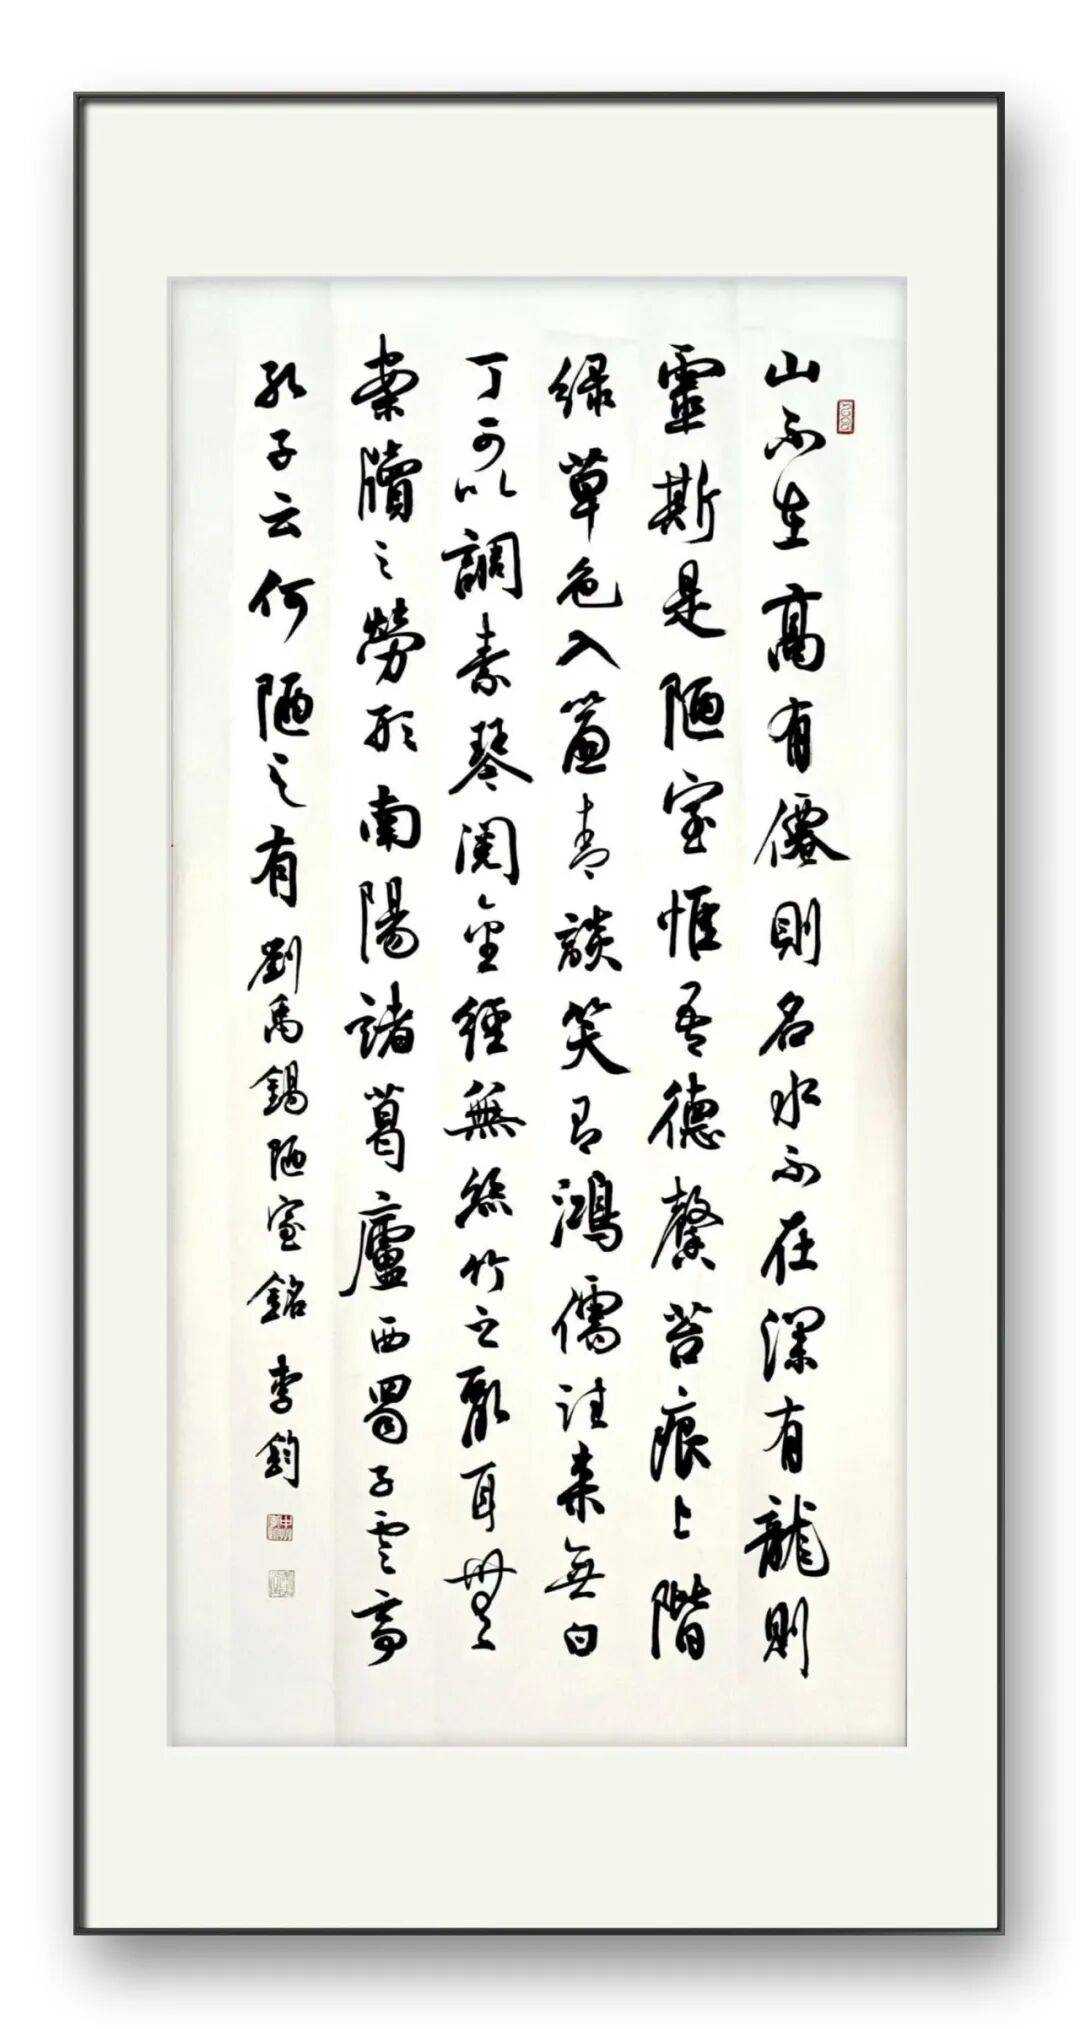 山不在高有僊則名水不在深有龍則
靈斯是陋室惟吾德馨苔痕上階
緑草色入簾青談笑有鴻儒往来無白
丁可以調素琴閲金經無絲竹之亂耳無
案牘之勞形南陽諸葛廬西蜀子雲亭
孔子云何陋之有 劉禹錫陋室銘 李鈞